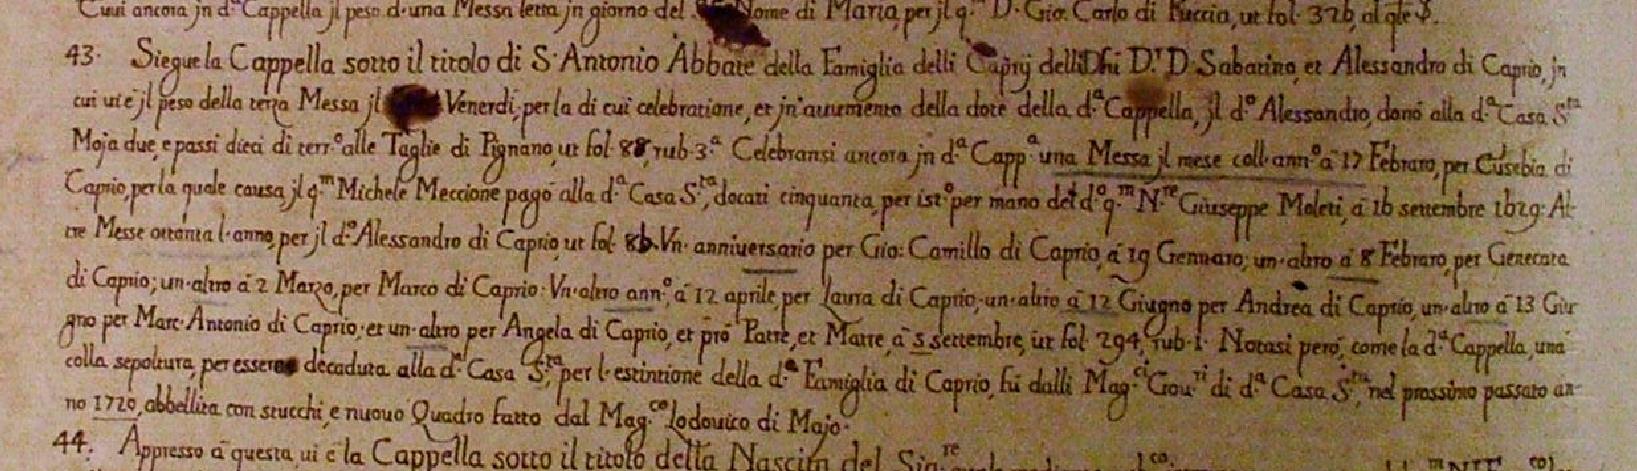 Cuui ancora jn d.ª Cappella jl peso d·una Messa letta jn giorno del Nome di Maria, per jl q.m D· Gio: Carlo di Ruccia, ut fol· 326, al q̃le S.
43· Siegue la Cappella sotto il titolo di S· Antonio Abbate della Famiglia delli Caprij delli Dñi D.r D· Sabatino, et Alessandro di Caprio, jn
cui ui è jl peso della terza Messa jl Venerdi, per la di cui celebratione, et jn' auumento della dote della d.ª Cappella, jl d.º Alessandro, donò alla d.ª Casa S.ta
Moja due, e passi dieci di terr.º alle Taglie di Pignano, ut fol· 88, rub· 3.ª Celebransi ancora jn d.ª Capp.ª una Messa jl mese coll·ann.º à 17 Febraro, per Eusebia di
Caprio, per la quale causa, jl q.m Michele Meccione pagò alla d.ª Casa S.ta, docati cinquanta, per ist.º per mano del d.º q.m N.re Giuseppe Moleti, à 16 settembre 1629· Al-
tre Messe ottanta l·anno, per jl d.º Alessandro di Caprio, ut fol· 86· Vn· anniuersario per Gio: Camillo di Caprio, à 19 Gennaro; un·altro à 8 Febraro, per Generata
di Caprio; un·altro à 2 Marzo, per Marco di Caprio· Vn·altro ann.º, à 12 aprile, per Laura di Caprio, un·altro à 12 Giugno per Andrea di Caprio, un·altro à 13 Giu-
gno per Marc·Antonio di Caprio; et un·altro per Angela di Caprio, et prò Patre, et Matre, à 5 settembre, ut fol· 294, rub· 1· Notasi però, come la d.ª Cappella, una
colla sepoltura, per essere decaduta alla d.ª Casa S.ta, per l·estintione della d.ª Famiglia di Caprio, fù dalli Mag.ci Gou.ri di d.ª Casa S.ta, nel prossimo passato an-
no 1720, abbellita con stucchi, e nuouo Quadro fatto dal Mag.co Lodouico di Majo·
44· Appresso à questa, ui è la Cappella sotto il titolo della Nascita del Sig.re